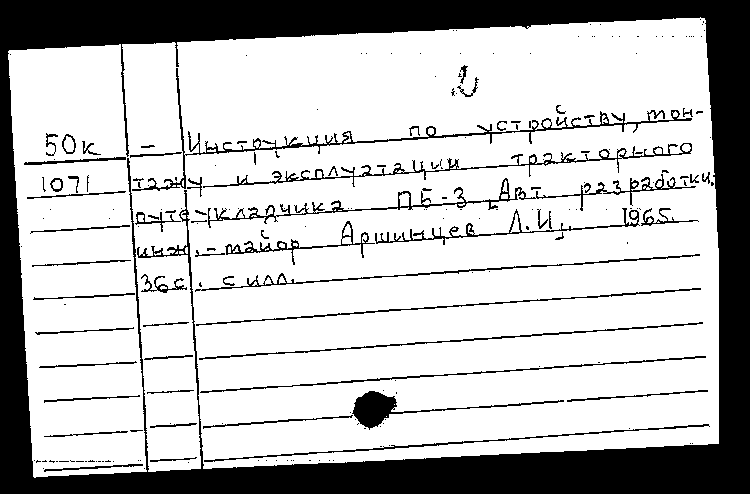 2
50к - Инструкция по устройству, мон-
1071 тажу и эксплуатации тракторного
путеукладчика ПБ-3 [Авт. разработки:
инж.-майор Аршинцев Л.И]. 1965.
36с. с илл.